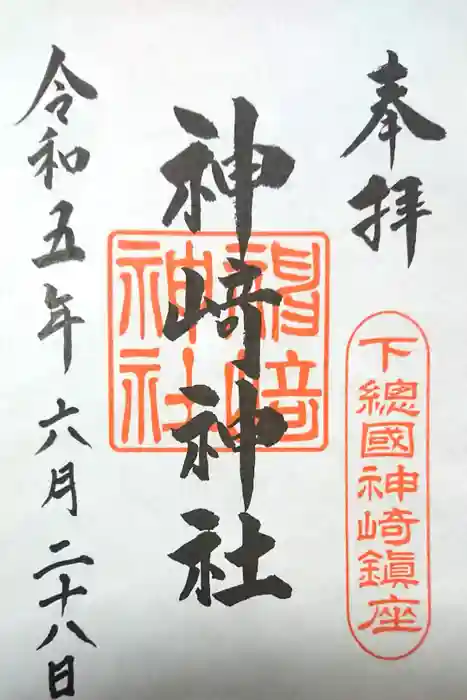 奉拝
下總國神崎鎮座
神崎神社
神崎
神社
令和五年六月二十八日